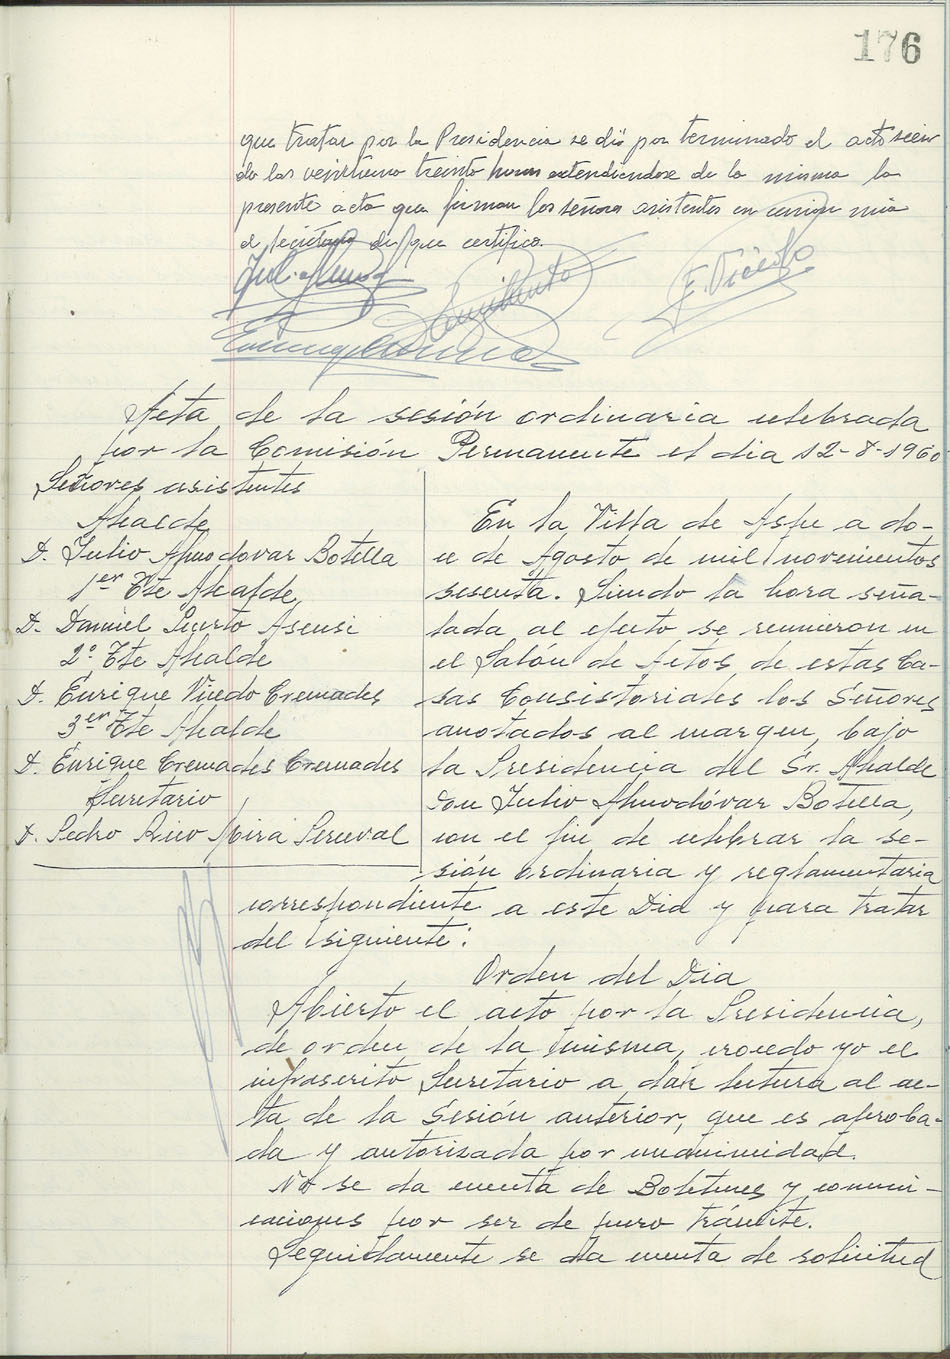 176
que tratar por la Presidencia se dió por terminado el acto sien
do las veintiuna treinta horas extendiendose de la misma la
presente acta que firman los señores asistentes en union mia
el secretario de que certifico.
E. Vicedo
Acta de la sesión ordinaria celebrada
por la Comisión Permanente el dia 12-8-1960
Señores asistentes
Alcalde
D. Julio Almodovar Botella
1er Tte Alcalde
D. Daniel Puerto Asensi
2º Tte Alcalde
D. Enrique Vicedo Cremades
3er Tte Alcalde
D. Enrique Cremades Cremades
Secretario
D. Pedro Rico Mira Perceval
En la Villa de Aspe a do-
ce de Agosto de mil novecientos
sesenta. Siendo la hora seña-
lada al efecto se reunieron en
el Salón de Actos de estas Ca-
sas Consistoriales los Señores
anotados al margen, bajo
la Presidencia del Sr. Alcalde
Don Julio Almodóvar Botella,
con el fin de celebrar la se-
sión ordinaria y reglamentaria
correspondiente a este Dia y para tratar
del siguiente:
Orden del Dia
Abierto el acto por la Presidencia,
de orden de la misma, procedo yo el
infrascrito Secretario a dar lectura al ac-
ta de la Sesión anterior, que es aproba-
da y autorizada por unanimidad.
No se da cuenta de Boletines y comuni-
caciones por ser de puro trámite.
Seguidamente se da cuenta de solicitud